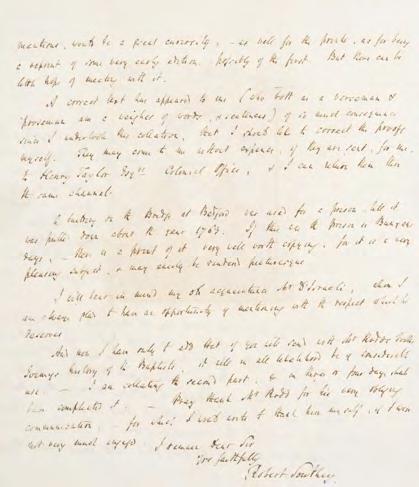 mentions, would be a great curiosity, - as well for the prints, as for being
a reprint of some very early edition, possibly of the first. But there can be
little hope of meeting with it.
A correct text has appeared to me (who both as a verseman &
proseman am a weigher of words, & sentences) of so much consequence
since I undertook this collation, that I should like to correct the proofs
myself. They may come to me without expence, if they are sent, for me,
to Henry Taylor Esqre Colonial Office, & I can return them thro
the same channel.
A building on the Bridge at Bedford was used for a prison, till it
was pulled down about the year 1765. If this was the Prison in Bunyan's
days, - there is a print of it very well worth copying, for it is a very
pleasing subject, & may easily be rendered picturesque
I will bear in mind my old acquaintance Mr D'Israeli, whom I
am always glad to have an opportunity of mentioning with the respect which he
deserves
And now I have only to add that if you will send with Mr Rodds books
Ivimeys history of the Baptists, it will in all likelihood be of considerable
use. - I am collating the second part, & in three or four days, shall
have compleated it. - Pray thank Mr Rodd for his very obliging
communication, - for which I would write to thank him myself, if I were
not very much engaged. I remain Dear Sir
Yrs faithfully
Robert Southey.